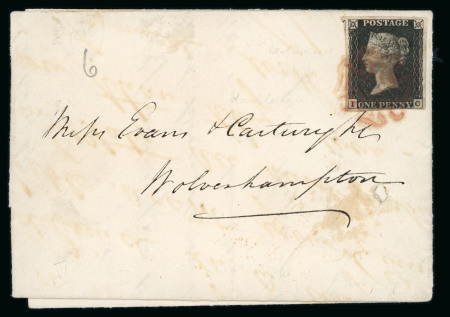 6
POSTAGE
I G
ONE PENNY
Miss Evans & Cartwright
Wolverhampton